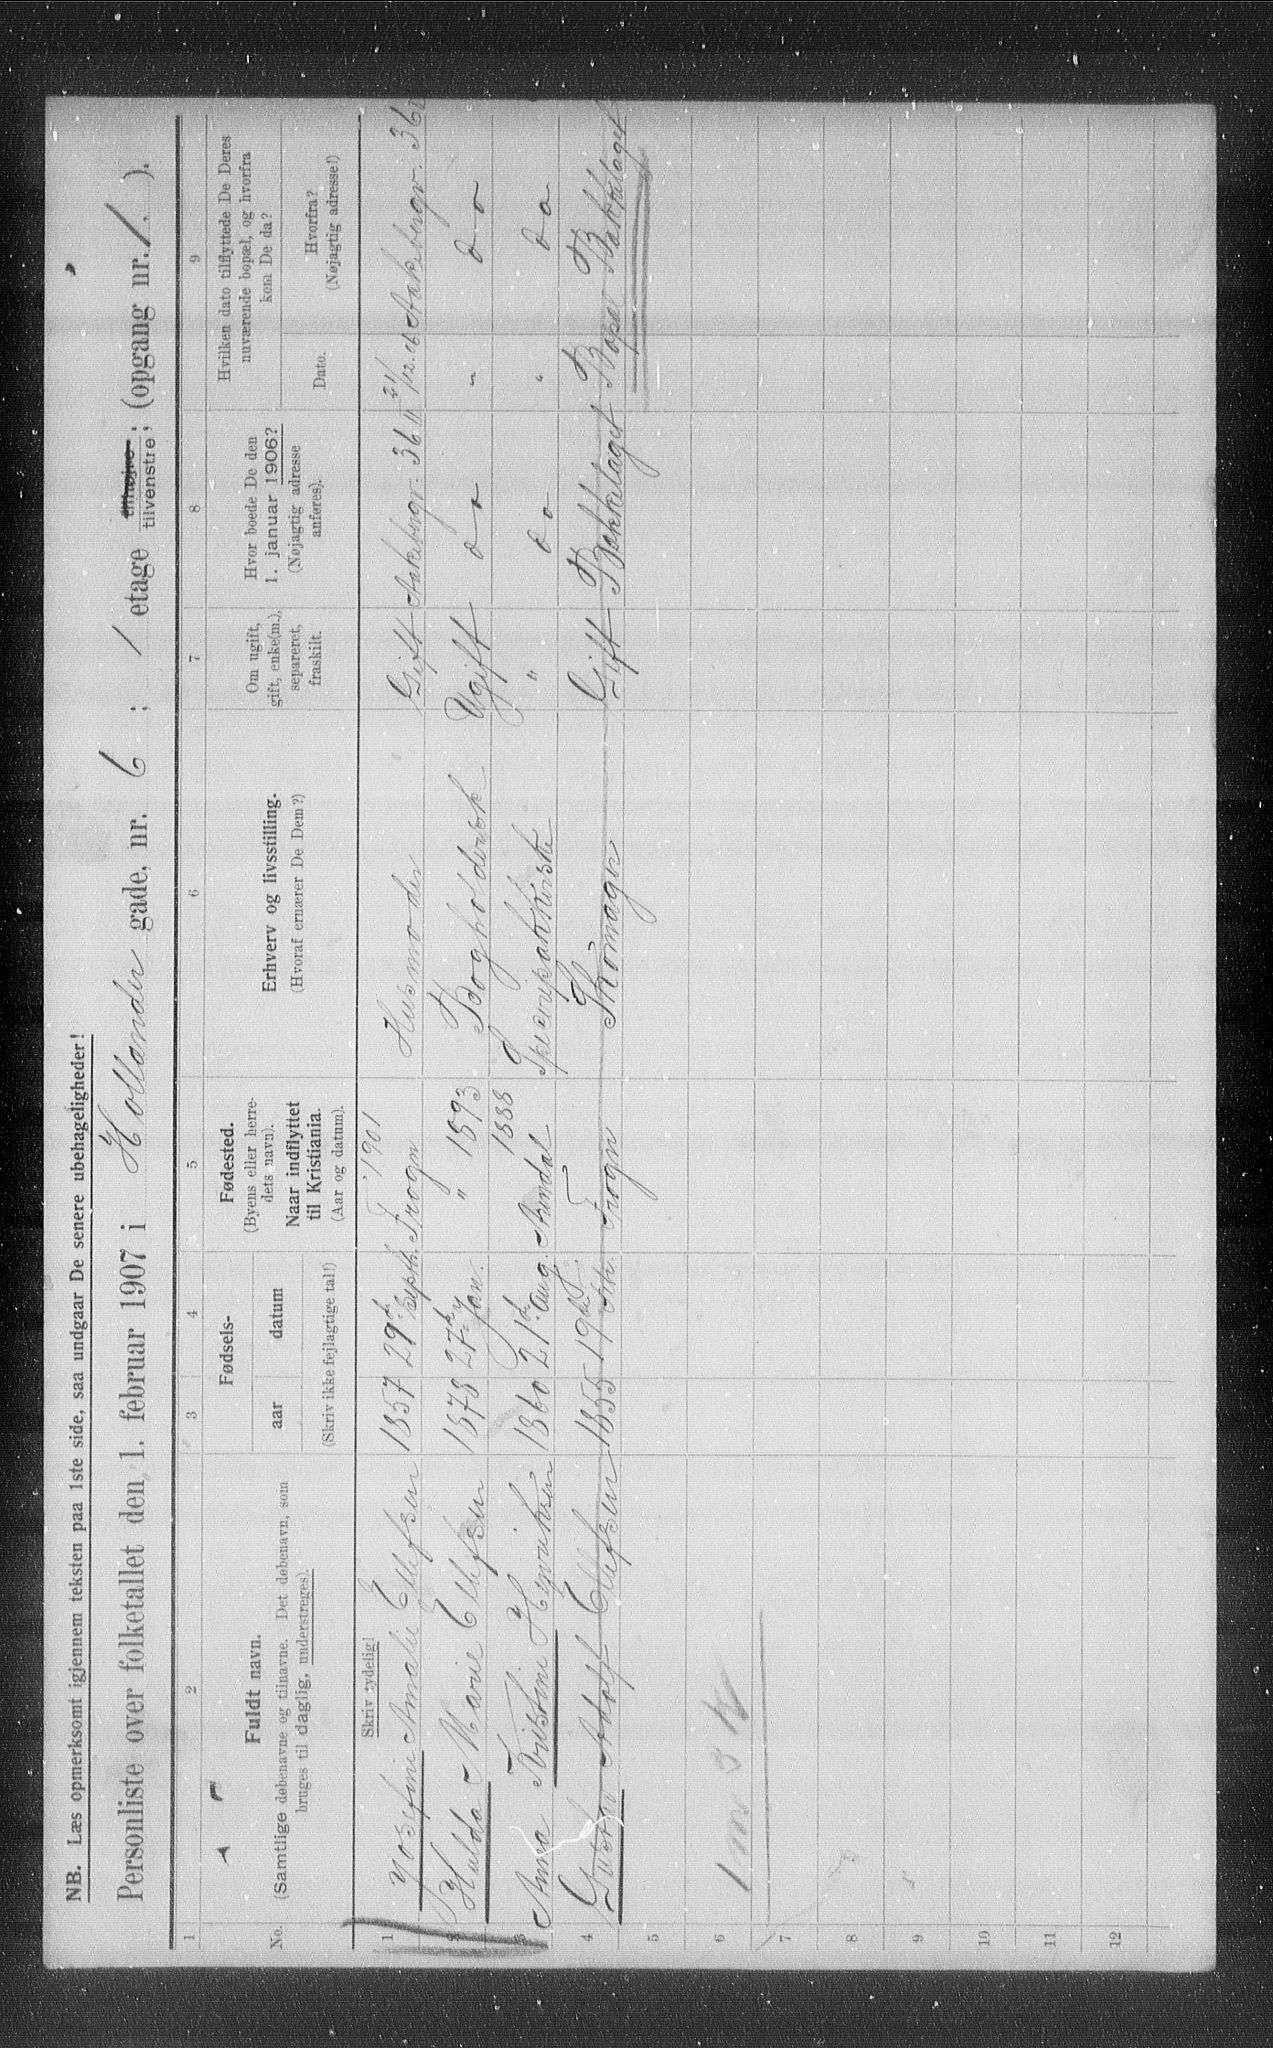 NB. Læs opmerksomt igjennem teksten paa 1ste side, saa undgaar De senere ubehageligheder!
Personliste over folketallet den 1. februar 1907 i Hollander gade, nr. 6 ; 1 etage tilhøjre tilvenstre; (opgang nr. 1. ).
1 2 3 4 5 6 7 8 9
No.
Fuldt navn.
(Samtlige døbenavne og tilnavne. Det døbenavn, som
bruges til daglig, understreges).
Fødsels-
aar datum
(Skriv ikke fejlagtige tal!)
Fødested.
(Byens eller herre-
dets navn).
Naar indflyttet
til Kristiania.
(Aar og datum).
Erhverv og livsstilling.
(Hvoraf ernærer De Dem?)
Om ugift,
gift, enke(m.),
separeret,
fraskilt.
Hvor boede De den
1. januar 1906?
(Nøjagtig adresse
anføres).
Hvilken dato tilflyttede De Deres
nuværende bopæl, og hvorfra
kom De da?
Dato.
Hvorfra?
(Nøjagtig adresse!)
Skriv tydelig!
1 Josefine Amalie Ellefsen 1857 29de Septh. Frogn 1901 Husmoder Gift Aakebergv. 36 II 21/12.06 Aakebergv. 36
2 Hulda Marie Ellefsen 1878 27de Jan. " 1893 Bogholderske Ugift do " do
3 Anna Kristine Henriksen 1860 21de aug. Arendal 1888 " do " do
4 Gustav Adolf Ellefsen 1855 19de Frogn Gift Bækkelaget Bopæl Bækkelaget
5
6
1 m 3 k
7
8
9
10
11
12